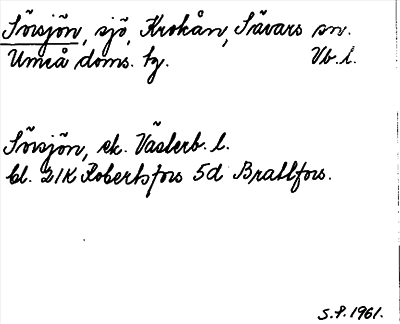 Sörsjön, sjö, Krokån, Sävars sn.
Umeå doms. hg. Vb. l.
Sörsjön, ek. Västerb. l.
bl. 21K Robertsfors 5d Brattfors.
S.P. 1961.